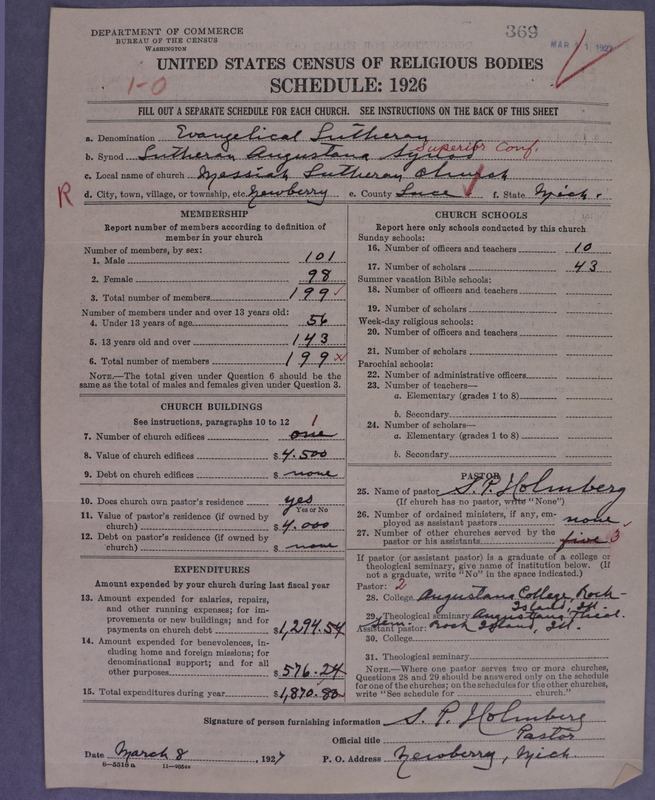 DEPARTMENT OF COMMERCE
BUREAU OF THE CENSUS
WASHINGTON
369
MAR 11 1927
UNITED STATES CENSUS OF RELIGIOUS BODIES
SCHEDULE: 1926
1-0
FILL OUT A SEPARATE SCHEDULE FOR EACH CHURCH. SEE INSTRUCTIONS ON THE BACK OF THIS SHEET
a. Denomination Evangelical Lutheran
b. Synod Lutheran Augustana Synod Superior Conf.
c. Local name of church Messiah Lutheran Church
R d. City, town, village, or township, etc. Newberry e. County Luce f. State Mich.
MEMBERSHIP
Report number of members according to definition of
member in your church
Number of members, by sex:
1. Male 101
2. Female 98
3. Total number of members 199
Number of members under and over 13 years old:
4. Under 13 years of age 56
5. 13 years old and over 143
6. Total number of members 199 x
NOTE.—The total given under Question 6 should be the
same as the total of males and females given under Question 3.
CHURCH BUILDINGS
See instructions, paragraphs 10 to 12 1
7. Number of church edifices one
8. Value of church edifices $ 4.500
9. Debt on church edifices $ none
10. Does church own pastor's residence yes
Yes or No
11. Value of pastor's residence (if owned by
church) $ 4.000
12. Debt on pastor's residence (if owned by
church) $ none
EXPENDITURES
Amount expended by your church during last fiscal year
13. Amount expended for salaries, repairs,
and other running expenses; for im-
provements or new buildings; and for
payments on church debt $ 1,294.54
14. Amount expended for benevolences, in-
cluding home and foreign missions; for
denominational support; and for all
other purposes $ 576.24
15. Total expenditures during year $ 1,870.88
CHURCH SCHOOLS
Report here only schools conducted by this church
Sunday schools:
16. Number of officers and teachers 10
17. Number of scholars 43
Summer vacation Bible schools:
18. Number of officers and teachers
19. Number of scholars
Week-day religious schools:
20. Number of officers and teachers
21. Number of scholars
Parochial schools:
22. Number of administrative officers
23. Number of teachers—
a. Elementary (grades 1 to 8)
b. Secondary
24. Number of scholars—
a. Elementary (grades 1 to 8)
b. Secondary
PASTOR
25. Name of pastor S. P. Holmberg
(If church has no pastor, write "None")
26. Number of ordained ministers, if any, em-
ployed as assistant pastors none
27. Number of other churches served by the
pastor or his assistants five 5
If pastor (or assistant pastor) is a graduate of a college or
theological seminary, give name of institution below. (If
not a graduate, write "No" in the space indicated.)
Pastor: 2
28. College Augustana College, Rock-
Island, Ill.
29. Theological seminary Augustana Theol.
Sem. Rock Island, Ill.
Assistant pastor:
30. College
31. Theological seminary
NOTE.—Where one pastor serves two or more churches,
Questions 28 and 29 should be answered only on the schedule
for one of the churches; on the schedules for the other churches,
write "See schedule for church."
Signature of person furnishing information S. P. Holmberg
Official title Pastor
Date March 8, 1927 P. O. Address Newberry, Mich.